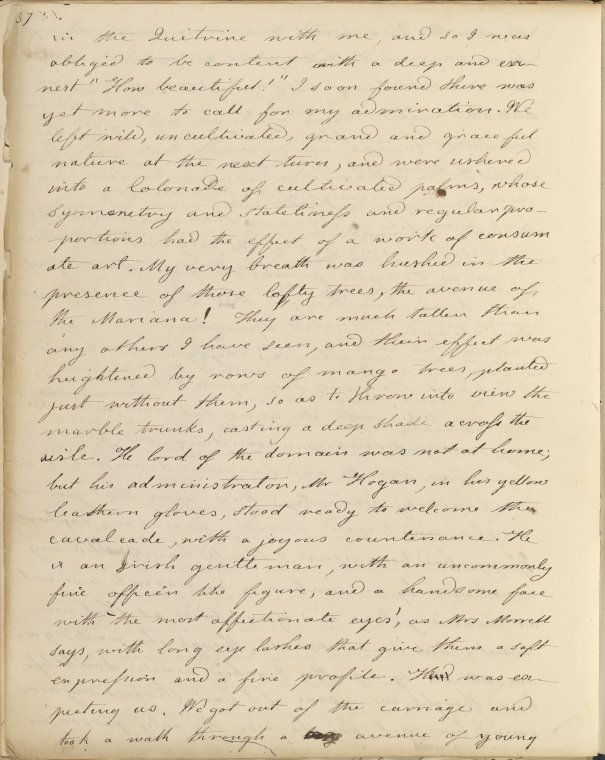 57
in the Quitrine with me, and so I was
obliged to be content with a deep and ear-
nest "How beautiful!" I soon found there was
yet more to call for my admiration. We
left wild, uncultivated, grand and graceful
nature at the next turn, and were ushered
into a Colonade of cultivated palms, whose
symmetry and stateliness and regular pro-
portions had the effect of a work of consum
ate art. My very breath was hushed in the
presence of those lofty trees, the avenue of
the Mariana! They are much taller than
any others I have seen, and their effect was
heightened by rows of mango trees, planted
just without them, so as to throw into view the
marble trunks, casting a deep shade across the
aisle. He lord of the domain was not at home;
but his administrator, Mr Hogan, in his yellow
leathern gloves, stood ready to welcome the
cavalcade, with a joyous countenance. He
is an Irish gentleman, with an uncommonly
fine officer like figure, and a handsome face
with "the most affectionate eyes', as Mrs Morrell
says, with long eye lashes that give them a soft
expression and a fine profile. was ex-
pecting us. We got out of the carriage and
took a walk through a avenue of young